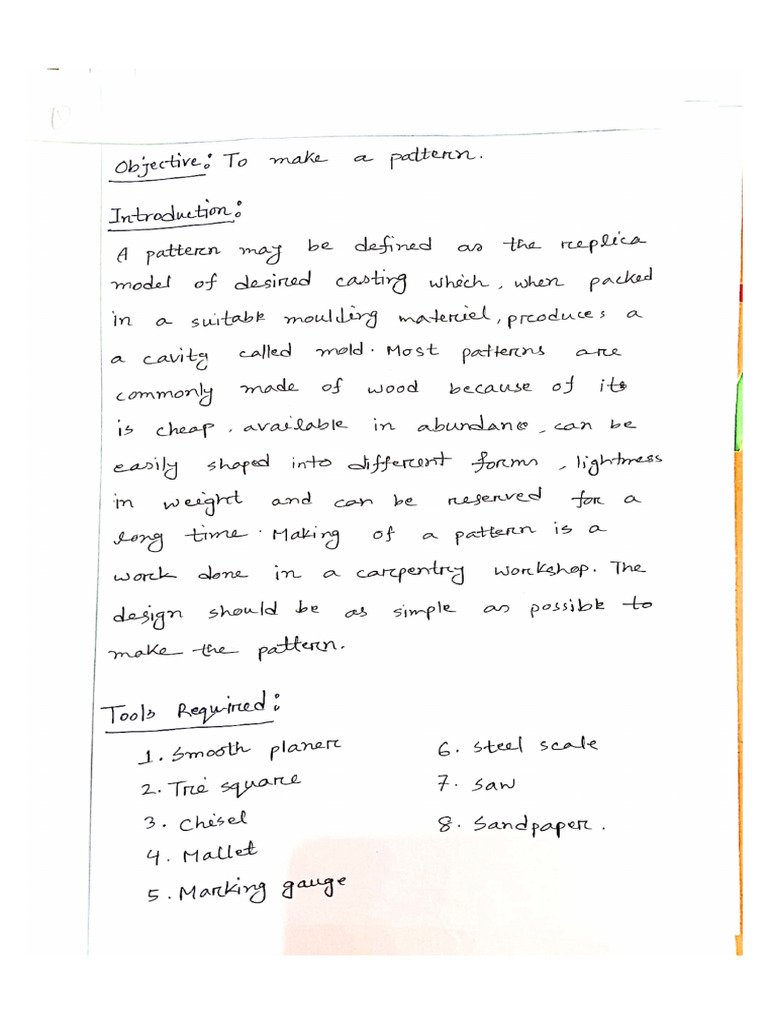 Objective: To make a pattern.
Introduction:
A pattern may be defined as the replica
model of desired casting which, when packed
in a suitable moulding materiel, produces a
a cavity called mold. Most patterns are
commonly made of wood because of its
is cheap, available in abundance, can be
easily shaped into different forms, lightness
in weight and can be reserved for a
long time. Making of a pattern is a
work done in a carpentry workshop. The
design should be as simple as possible to
make the pattern.
Tools Required:
1. Smooth planer
2. Trie square
3. Chisel
4. Mallet
5. Marking gauge
6. Steel scale
7. Saw
8. Sandpaper.